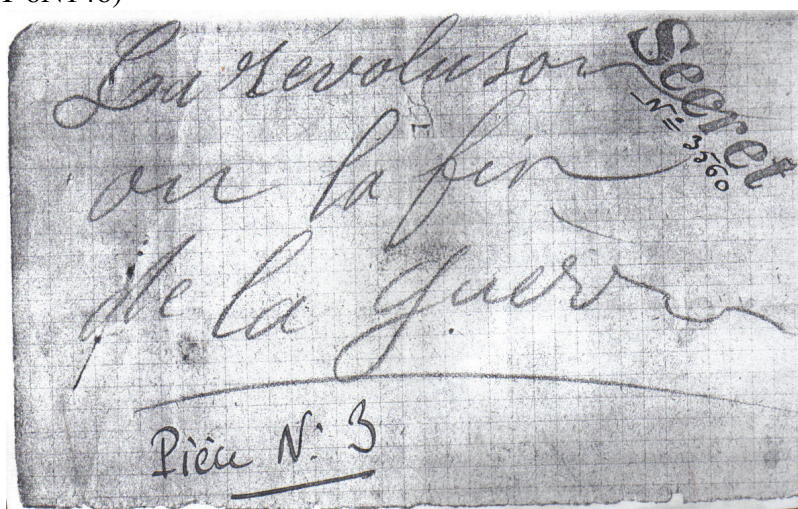 La révoluson
ou la fin
de la guère
Secret
N° 3560
Pièce N: 3